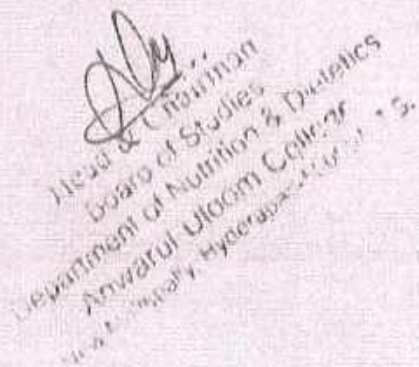 Head & Chairman
Board of Studies
Department of Nutrition & Dietetics
Anwarul Uloom College
Hyderabad